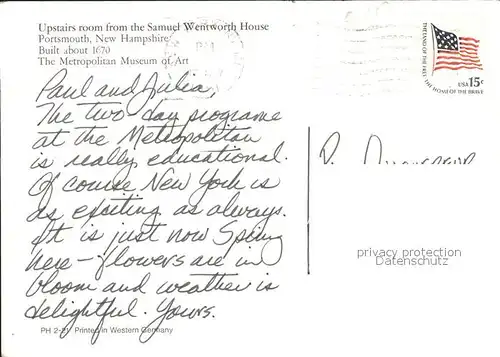 Upstairs room from the Samuel Wentworth House
Portsmouth, New Hampshire
Built about 1670
The Metropolitan Museum of Art
THE LAND OF THE FREE THE HOME OF THE BRAVE
USA 15c
Paul and Julia,
The two-day programe
at the Metropolitan
is really educational.
Of course New York is
as exciting as always.
It is just now Spring
here – flowers are in
bloom and weather is
delightful. Yours.
privacy protection
Datenschutz
PH 2-21 Printed in Western Germany